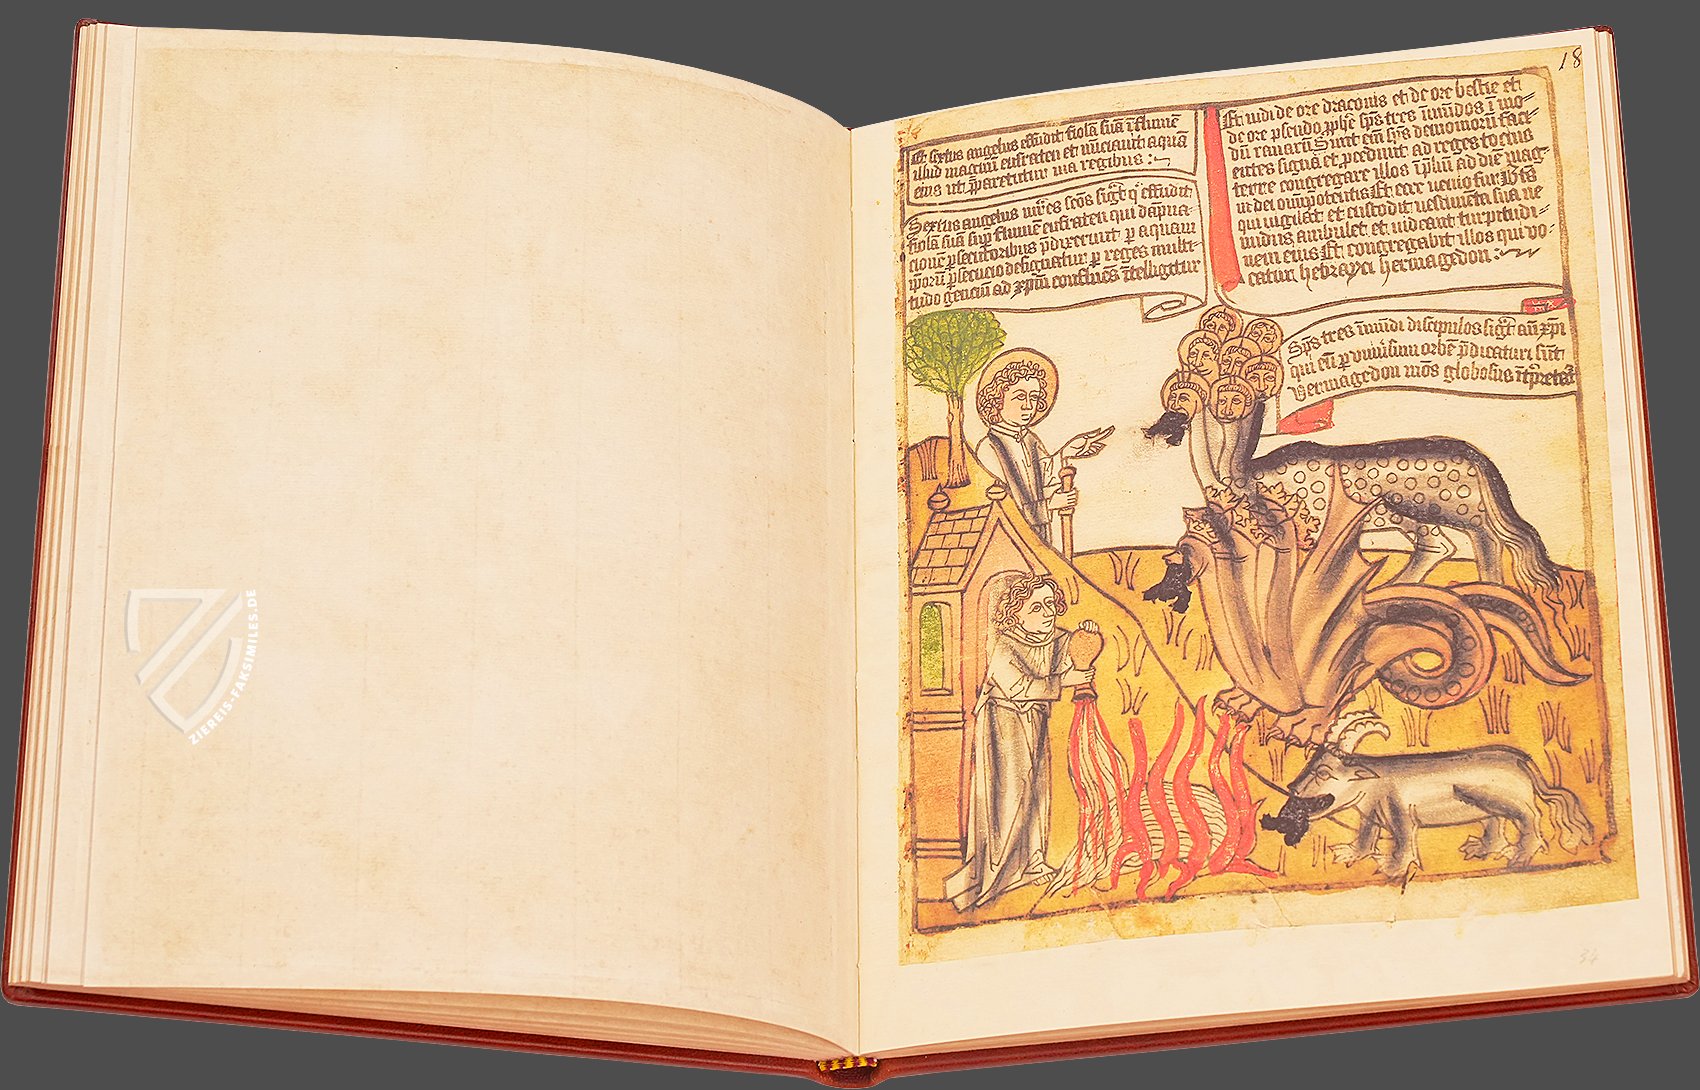 18
Et sextus angelus effudit fiolā suā ī flumē
illud magnū eufraten et siccauit aquā
eius ut p̄pararetur uia regibus :~
Sextus angelus
fiolā suā sup̄ flumē eufraten qui
p̄secutoribus p̄dixerunt p aquam
p̄secucio designatur p reges multi
tudo genciū ad xp̄m confluēs ītelligitur
Et uidi de ore draconis et de ore bestie et
de ore pseudo spūs tres īmūdos ī mo=
dū ranarū Sunt em̄ spūs demoniorū faci=
entes signa et p̄cedunt ad reges tocius
terre congregare illos ī p̄liū ad diē mag
ni dei omīpotentis Et ecce uenio fur
qui uigilat et custodit uestimēta sua ne
nudus ambulet et uideant turpitudi=
nem eius Et congregabit illos qui uo=
catur hebrayci hermagedon :~
Spūs tres īmūdi discipulos
qui eū p uniūsum orbē p̄dicaturi sūt
Hermagedon mōs globosus
ZIEREIS-FAKSIMILES.DE
34